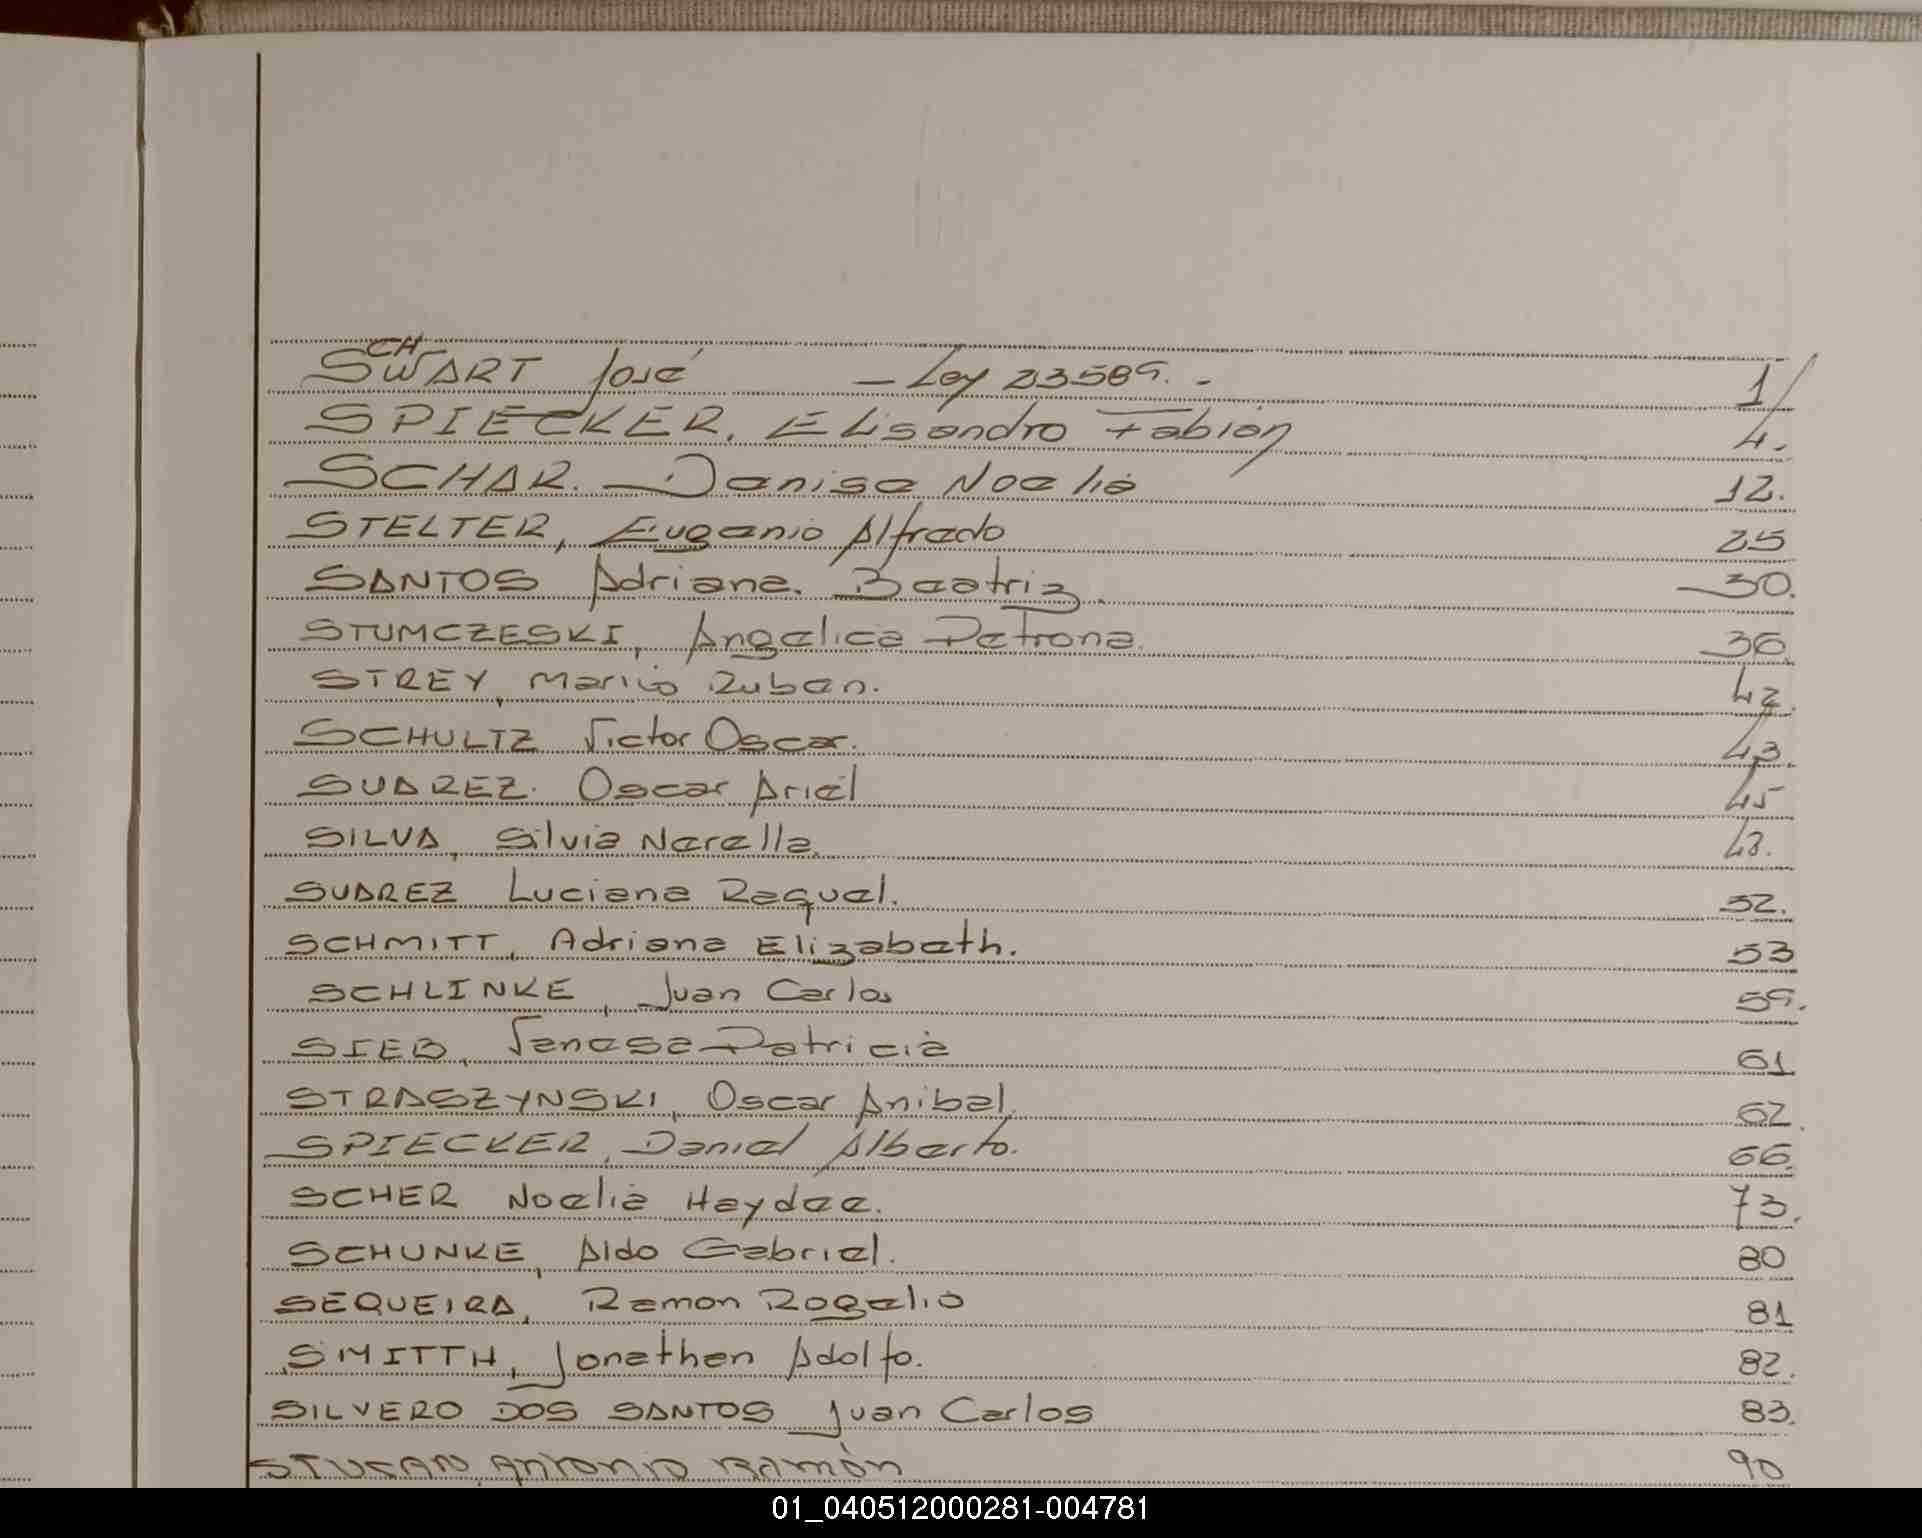 SCHWART José - Ley 23589. - 1
SPIECKER, Elisandro Fabián 4.
SCHAR. Danisa Noelia 12.
STELTER, Eugenio Alfredo 25
SANTOS Adriana. Beatriz. 30.
STUMCZESKI, Angelica Petrona. 36.
STREY, Mario Ruben. 42.
SCHULTZ Victor Oscar. 43.
SUAREZ. Oscar Ariel 45
SILVA, Silvia Nerella.
SUAREZ Luciana Raquel. 52.
SCHMITT, Adriana Elizabeth. 53
SCHLINKE, Juan Carlos 59.
SIEB, Vanesa Patricia 61
STRASZYNSKI, Oscar Anibal. 62.
SPIECKER, Daniel Alberto. 66.
SCHER Noelia Haydee. 73.
SCHUNKE, Aldo Gabriel. 80
SEQUEIRA, Ramon Rogelio 81
SMITTH, Jonathan Adolfo. 82.
SILVERO DOS SANTOS Juan Carlos 83.
Antonio Ramón 90
01_040512000281-004781